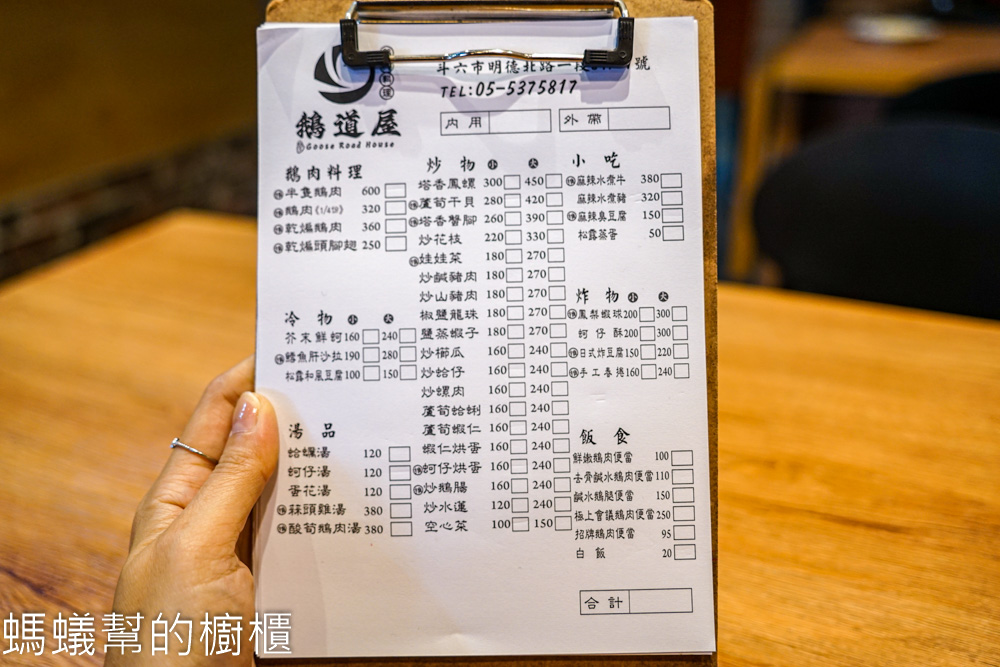 斗六市明德北路一段 號
TEL:05-5375817
料理
鵝道屋
Goose Road House
內用
外帶
鵝肉料理
半隻鵝肉 600
鵝肉(1/4份) 320
乾煸鵝肉 360
乾煸頭腳翅 250
冷物 小 大
芥末鮮蚵 160 240
鱈魚肝沙拉 190 280
松露和風豆腐 100 150
湯品
蛤蜊湯 120
蚵仔湯 120
蛋花湯 120
蒜頭雞湯 380
酸筍鵝肉湯 380
炒物 小 大
塔香鳳螺 300 450
蘆筍干貝 280 420
塔香蟹腳 260 390
炒花枝 220 330
娃娃菜 180 270
炒鹹豬肉 180 270
炒山豬肉 180 270
椒鹽龍珠 180 270
鹽蒸蝦子 180 270
炒櫛瓜 160 240
炒蛤仔 160 240
炒螺肉 160 240
蘆筍蛤蜊 160 240
蘆筍蝦仁 160 240
蝦仁烘蛋 160 240
蚵仔烘蛋 160 240
炒鵝腸 160 240
炒水蓮 120 240
空心菜 100 150
小吃
麻辣水煮牛 380
麻辣水煮豬 320
麻辣臭豆腐 150
松露蒸蛋 50
炸物 小 大
鳳梨蝦球 200 300
蚵仔酥 200 300
日式炸豆腐 150 220
手工春捲 160 240
飯食
鮮嫩鵝肉便當 100
去骨鹹水鵝肉便當 110
鹹水鵝腿便當 150
極上會議鵝肉便當 250
招牌鵝肉便當 95
白飯 20
合計
螞蟻幫的櫥櫃